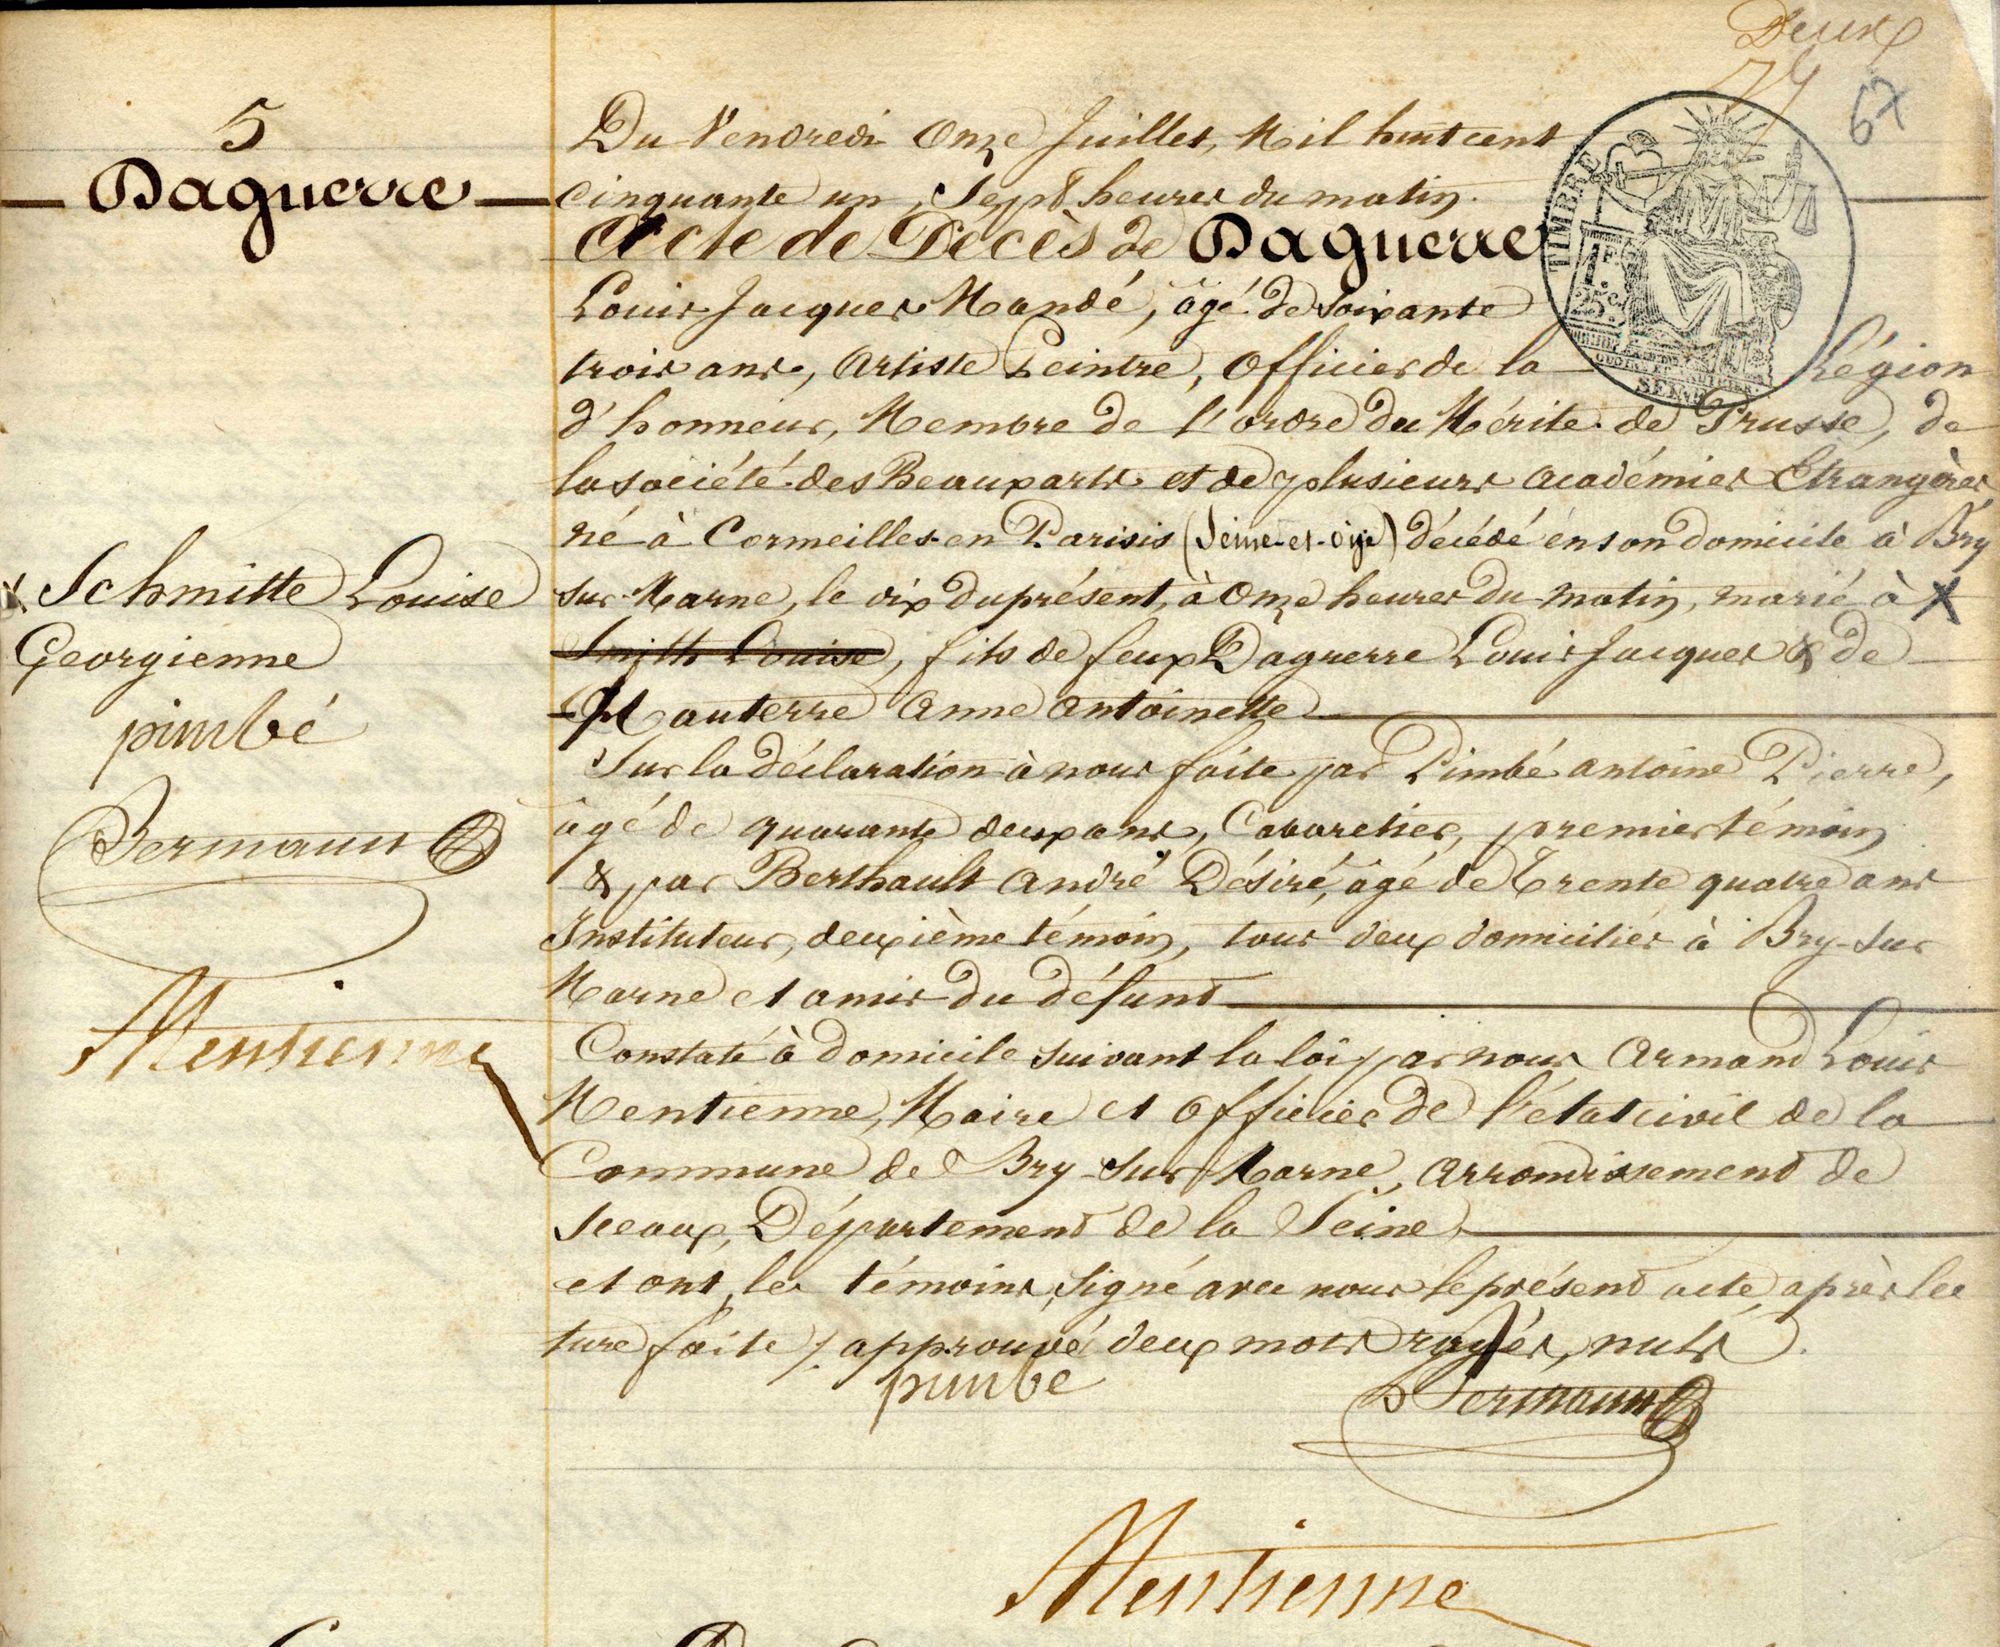 Deux
67
5
Daguerre
Du Vendredi Onze Juillet, Mil huit cent
cinquante un, Sept heures du matin.
Acte de Décès de Daguerre
Louis Jacques Mandé, âgé de soixante
trois ans, Artiste Peintre, Officier de la Légion
d'honneur, Membre de l'ordre du Mérite de Prusse, de
la société des Beaux arts et de plusieurs académies Etrangères,
né à Cormeilles-en Parisis (Seine-et-Oise) décédé en son domicile à Bry
sur-Marne, le dix du présent, à Onze heures du matin, marié à X
Smith Louise, fils de feux Daguerre Louis Jacques & de
Hauterre Anne Antoinette
Sur la déclaration à nous faite par Pimbé Antoine Pierre,
âgé de quarante deux ans, Cabaretier, premier témoin
& par Berthault André Désiré, âgé de Trente quatre ans
Instituteur, deuxième témoin, tous deux domiciliés à Bry-sur
Marne et amis du défunt
Constaté à domicile suivant la loi par nous Armand Louis
Mentienne, Maire et Officier de l'état civil de la
Commune de Bry-sur Marne, arrondissement de
Sceaux, Département de la Seine
et ont, les témoins, signé avec nous le présent acte, après lec
ture faite /. approuvé deux mots rayés, nuls.
pimbé
Mentienne
X Schmitte Louise
Georgienne
pimbé
Mentienne
TIMBRE
1F.
25c.
SEINE